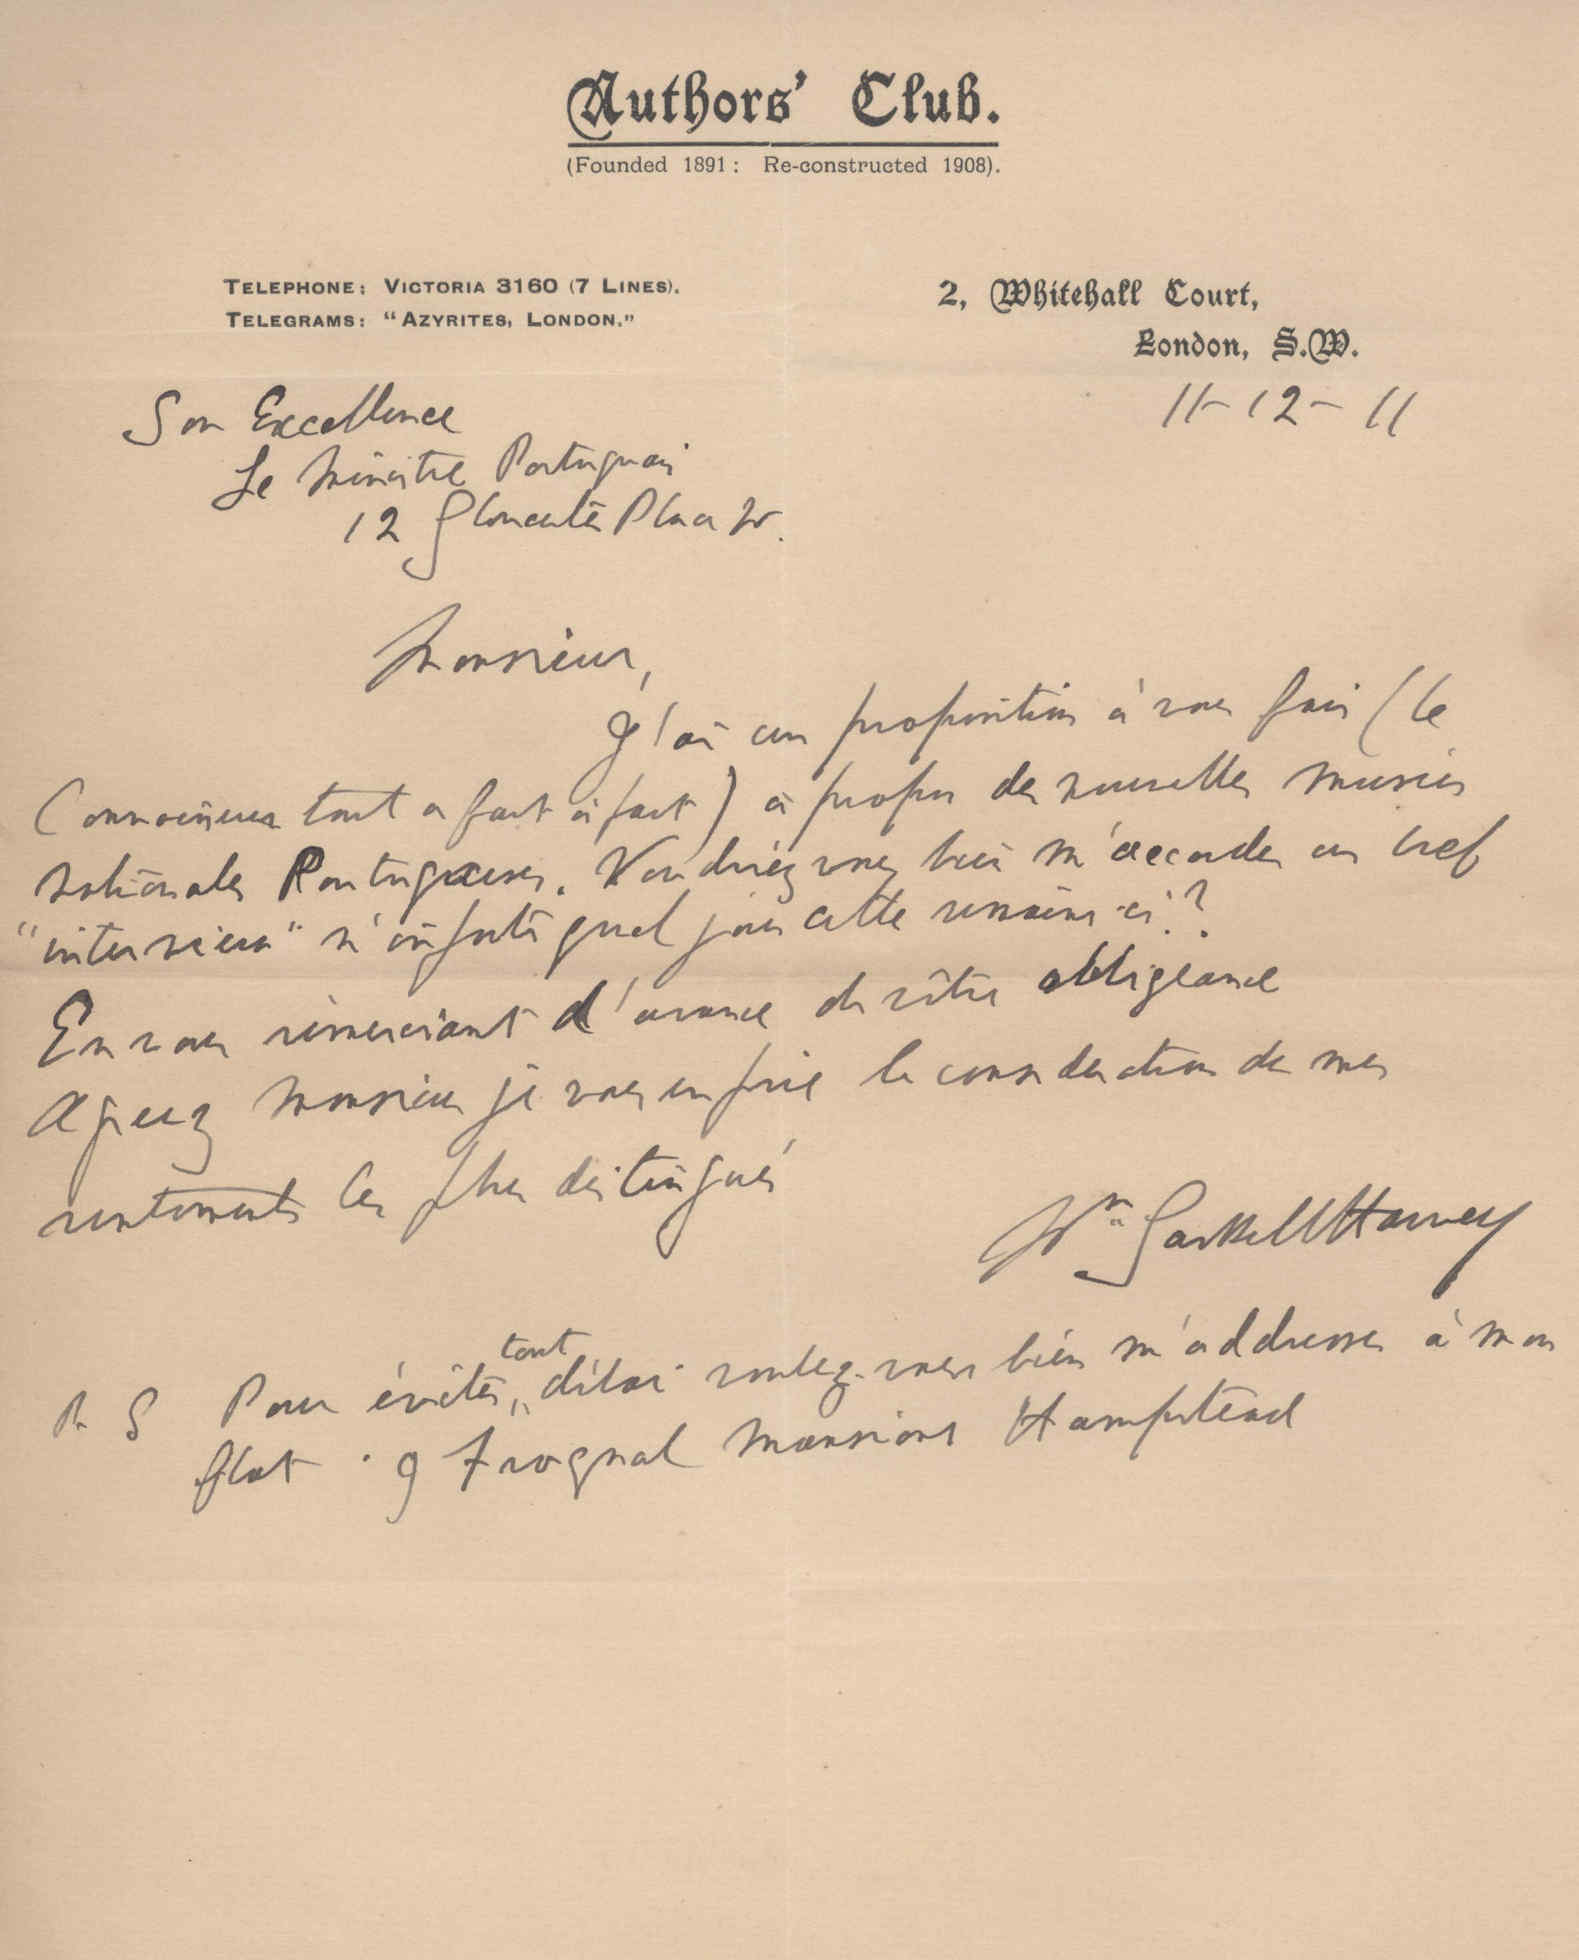 Authors' Club.
(Founded 1891: Re-constructed 1908).
TELEPHONE: VICTORIA 3160 (7 LINES).
TELEGRAMS: "AZYRITES, LONDON."
2, Whitehall Court,
London, S.W.
11-12-11
Son Excellence
Le Ministre Portugais
12 Gloucester Place W.
Monsieur,
J'ai une proposition à vous faire (le
tout a fait à part) à propos des nouvelles
nationales Portugaises. Voudriez vous bien m'accorder un bref
"interview" n'importe quel jour cette semaine-ci?
En vous remerciant d'avance de vôtre obligeance
Agreez Monsieur je vous en prie la consideration de mes
sentiments les plus distingués
Wm Gaskell Harvey
P S Pour éviter tout délai voulez-vous bien m'addresser à mon
flat. 9 Frognal Mansions Hampstead